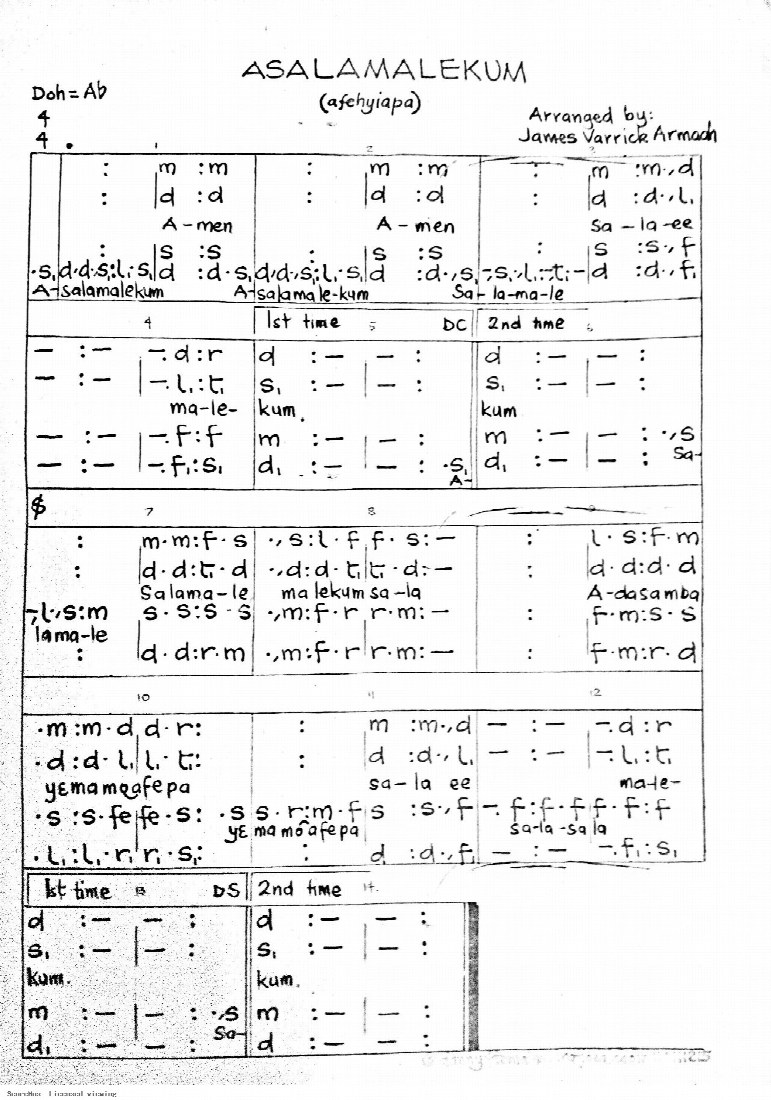 ASALAMALEKUM
(afehyiapa)
Doh = Ab
4
4
Arranged by:
James Varrick Armah
1 2
: m :m : m :m : m :m.,d
: d :d : d :d : d :d.,l,
A-men A-men Sa-la-ee
: s :s : s :s : s :s.,f
.s, d.d.s,:l,.s, d :d.s, d.d.,s,:l,.s, d :d.,s, -.s,.,l,:-.t,:- d :d.,f,
A-salamalekum A-salamale-kum Sa-la-ma-le
4 1st time 5 DC 2nd time 6
- :- -.d:r d :- - : d :- - :
- :- -.l,:t, s, :- - : s, :- - :
ma-le- kum. kum
- :- -.f:f m :- - : m :- - : .,s
- :- -.f,:s, d, :- - : .s, d, :- - : Sa-
A-
$ 7 8 9
: m.m:f.s .,s:l.f f.s:- : l.s:f.m
: d.d:t,.d .,d:d.t, t,.d:- : d.d:d.d
Salama-le malekum sa-la A-dasamba
-.,l.,s:m s.s:s.s .,m:f.r r.m:- : f.m:s.s
lama-le
: d.d:r.m .,m:f.r r.m:- : f.m:r.d
10 11 12
.m:m.d d.r: : m :m.,d - :- -.d:r
.d:d.l, l,.t,: : d :d.,l, - :- -.l,:t,
yɛmamoafepa sa-la ee ma-le-
.s:s.fe fe.s: .s s.r:m.f s :s.,f -.f:f.f f.f:f
yɛ mamoafepa sa-la-sala
.l,:l,.r, r,.s,: : d :d.,f, - :- -.f,:s,
1st time 13 DS 2nd time 14
d :- - : d :- - :
s, :- - : s, :- - :
kum. kum.
m :- - : .,s m :- - :
Sa-
d, :- - : d :- - :